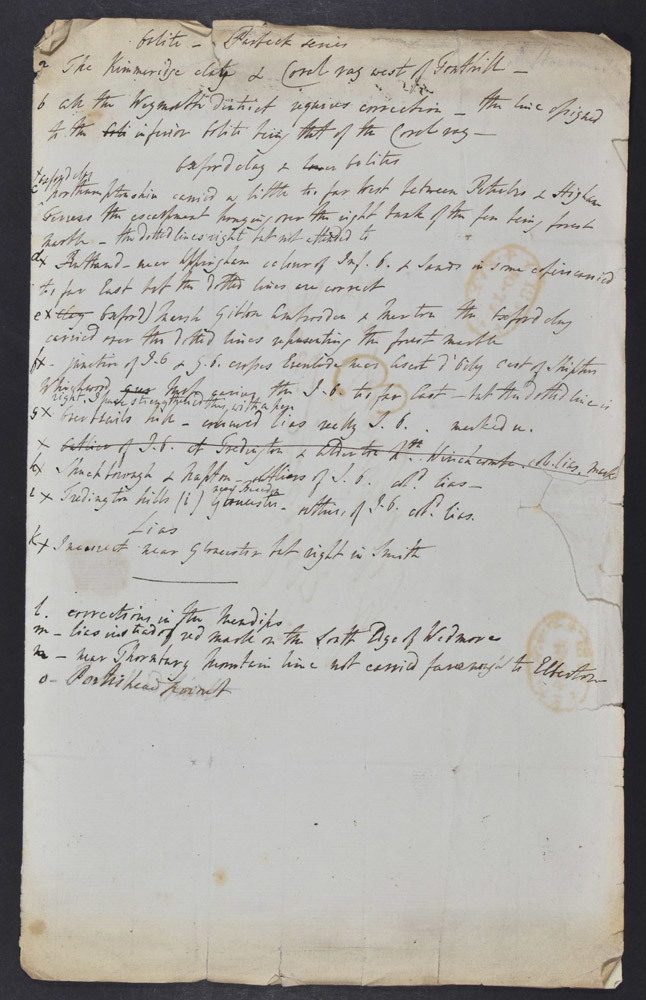 Oolite - Purbeck series
a The Kimmeridge clay & Coral rag west of Fonthill -
b all the Weymouth District requires correction - the line assigned
to the inferior Oolite being that of the Coral rag -
Oxford clay & lower oolites
Oxford clay
c Northamptonshire carried a little too far West between & Higham
Ferrers the escarpment hanging over the right bank of the Nen being forest
marble - the dotted lines right but not attended to
d x Rutland - near Uppingham colour of Inf. O. & Sands in some copies carried
too far East but the dotted lines are correct
e x clay Oxford) Marsh Gibbon Ambrosden & Merton the Oxford clay
carried over the dotted lines representing the forest marble
f x - junction of I.O & G.O. copses near Ascot d'Oily east of Shipton
Whichwood the I.O. too far East - but the dotted line is
right. I have strengthened this with a pen
g x hill - coloured lias really I. O. . marked u.
x outlier of I.O. at Tredington & Alderton Winchcombe col. lias. mark
h x Shuckborough & Napton - outliers of I. O. cold. lias -
near
i x Tredington hills (i) Gloucester - outliers of I.O. cold. lias.
Lias
k x Incorrect near Gloucester but right in Smith
l. corrections in the Mendips
m - lias instead of red marle on the South Edge of Wedmore
n - near Thornbury Mountain lime not carried far enough to Elberton
o - Portishead point